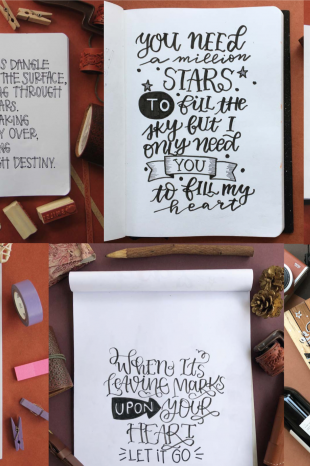 S DANGLE
THE SURFACE,
NG THROUGH
ARS.
AKING
Y OVER,
NG
GH DESTINY.
YOU NEED
a million
STARS
TO fill the
sky but I
only need
YOU
to fill my
heart
WHEN ITS
LEAVING MARKS
UPON YOUR
HEART
LET IT GO